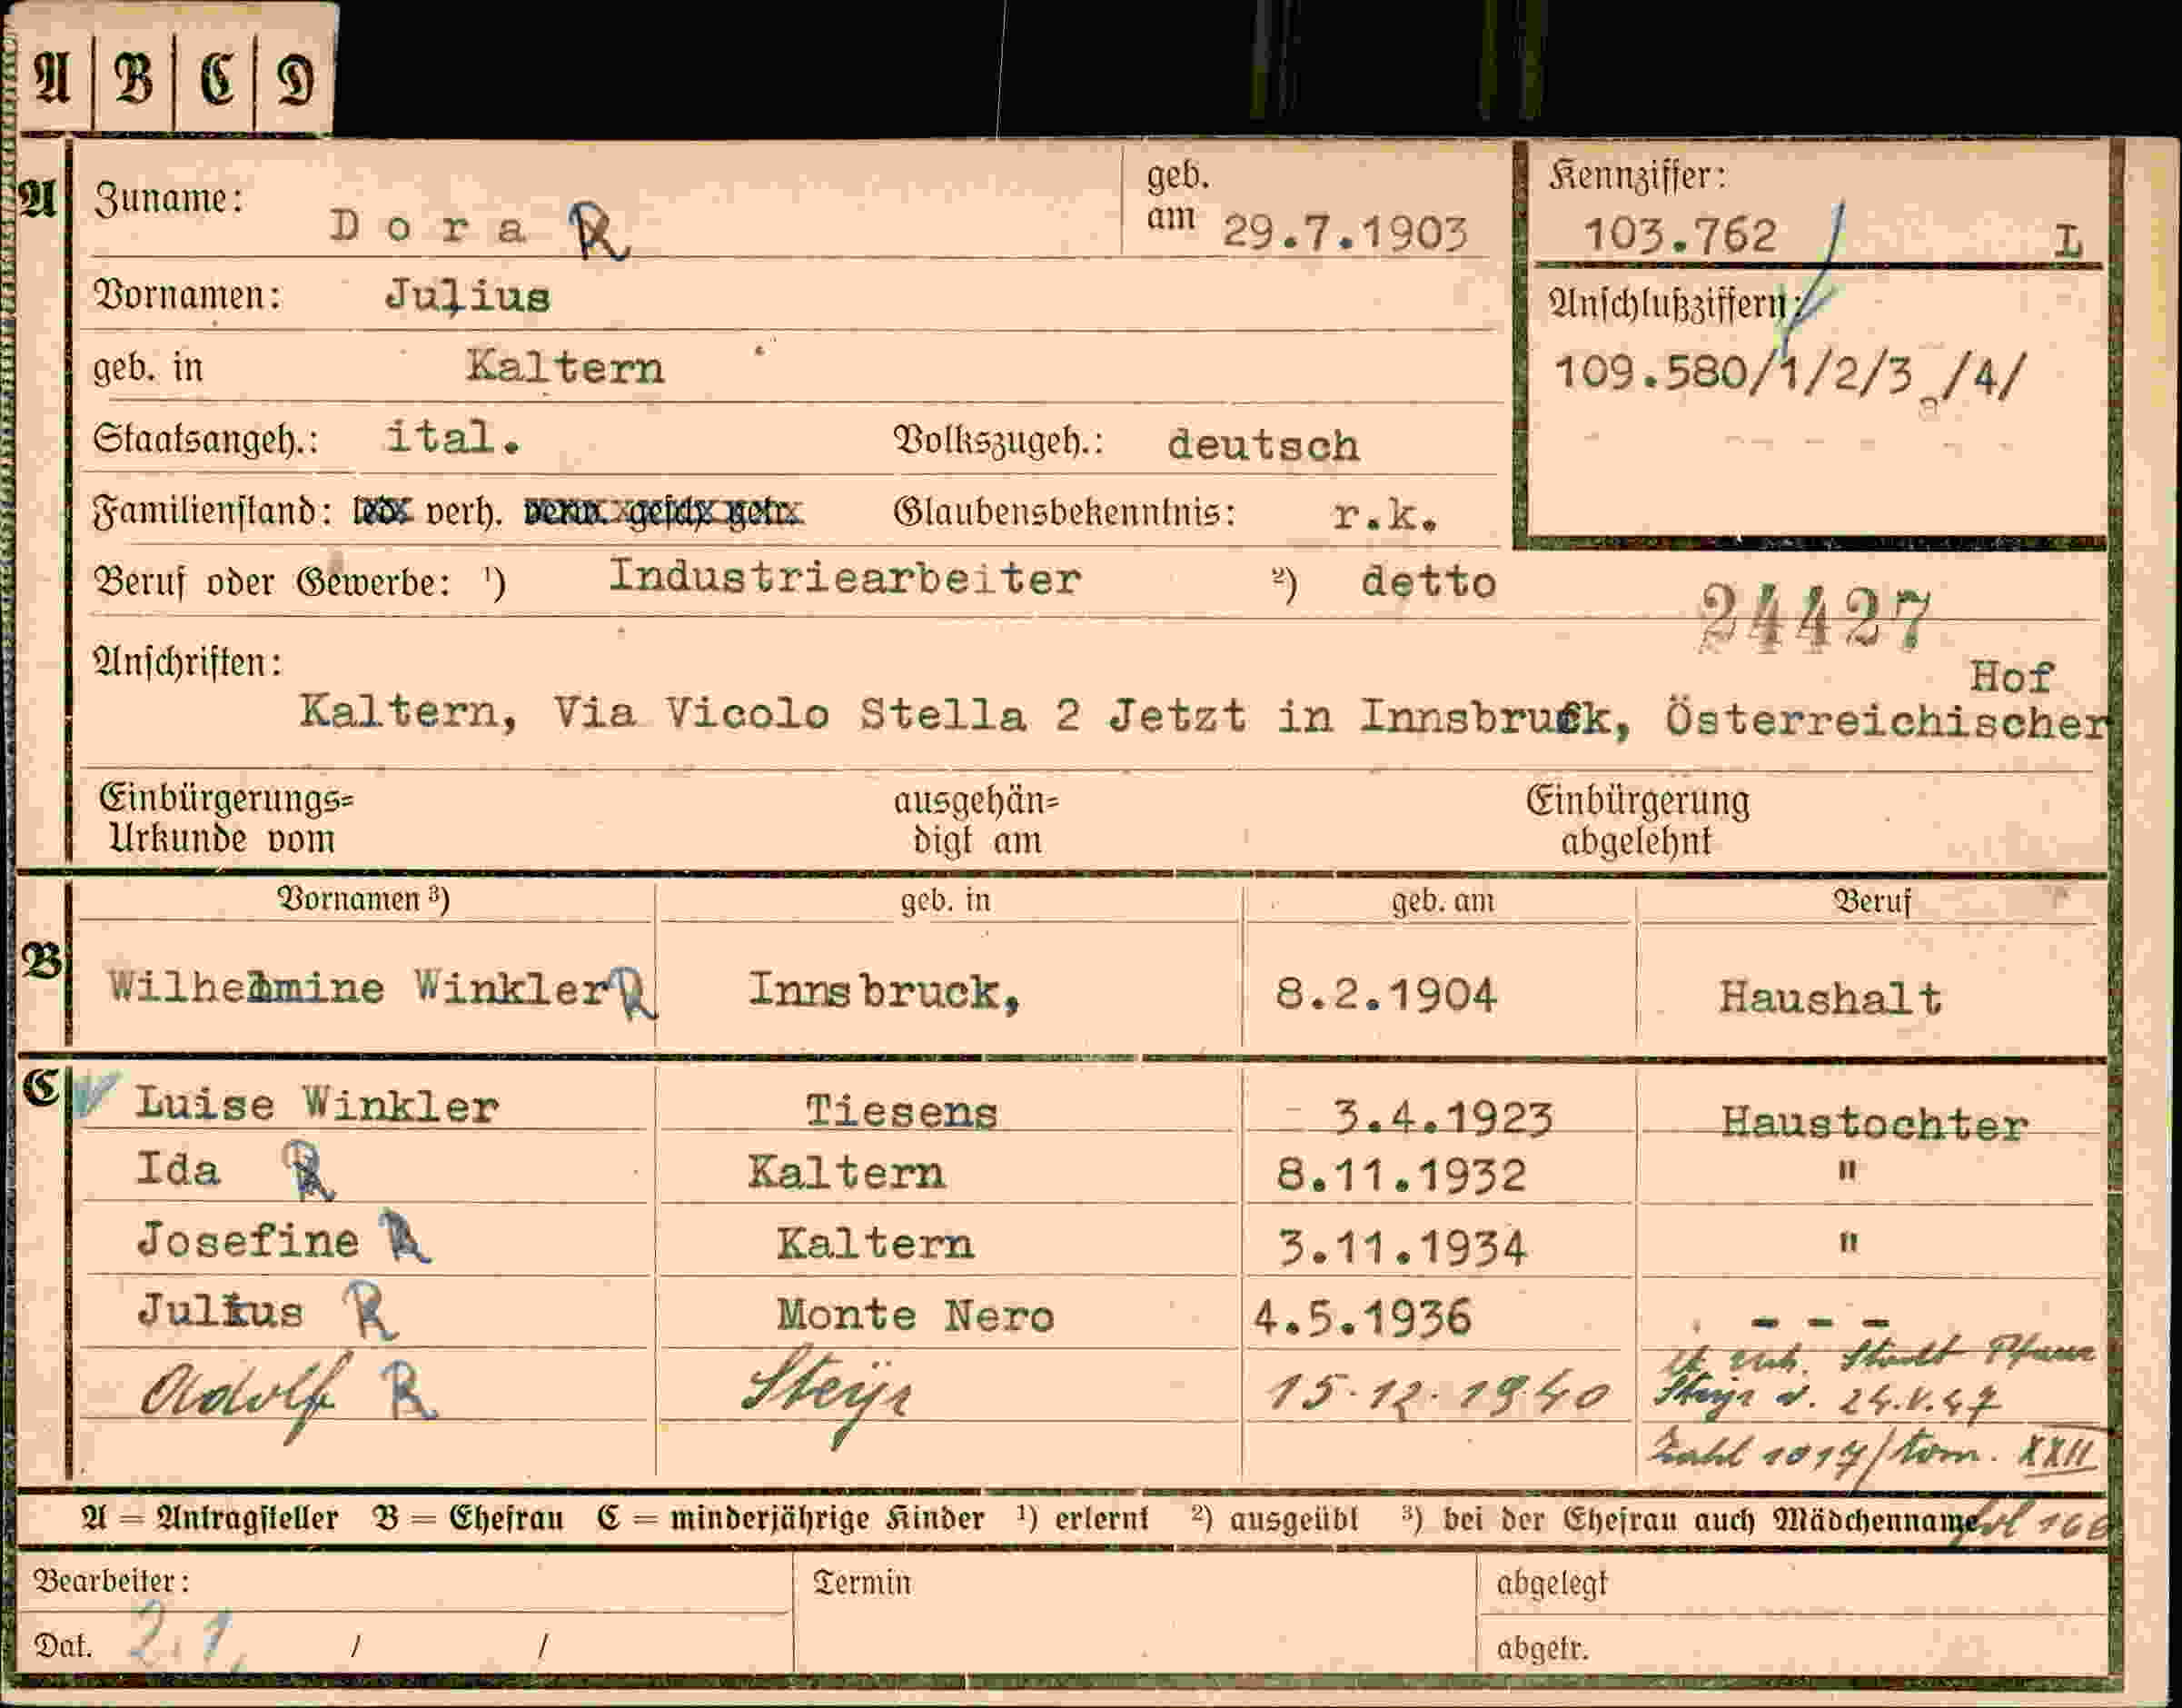 A B C D
A Zuname: Dora R geb. am 29.7.1903 Kennziffer: 103.762 L
Vornamen: Julius Anschlußziffern:
geb. in Kaltern 109.580/1/2/3 /4/
Staatsangeh.: ital. Volkszugeh.: deutsch
Familienstand: led. verh. verw. gesch. getr. Glaubensbekenntnis: r.k.
Beruf oder Gewerbe: ¹) Industriearbeiter ²) detto
24427
Anschriften: Hof
Kaltern, Via Vicolo Stella 2 Jetzt in Innsbruck, Österreichischer
Einbürgerungs= ausgehän= Einbürgerung
Urkunde vom digt am abgelehnt
Vornamen ³) geb. in geb. am Beruf
B Wilhelmine Winkler R Innsbruck, 8.2.1904 Haushalt
C Luise Winkler Tiesens 3.4.1923 Haustochter
Ida R Kaltern 8.11.1932 "
Josefine R Kaltern 3.11.1934 "
Julius R Monte Nero 4.5.1936 - - -
Adolf R Steyr 15.12.1940 Stadt Pfarre
Steyr v. 24.V.47
Zahl 1017/tom. XXII
fol 166
A = Antragsteller B = Ehefrau C = minderjährige Kinder ¹) erlernt ²) ausgeübt ³) bei der Ehefrau auch Mädchenname
Bearbeiter: Termin abgelegt
Dat. 2.1. / / abgetr.